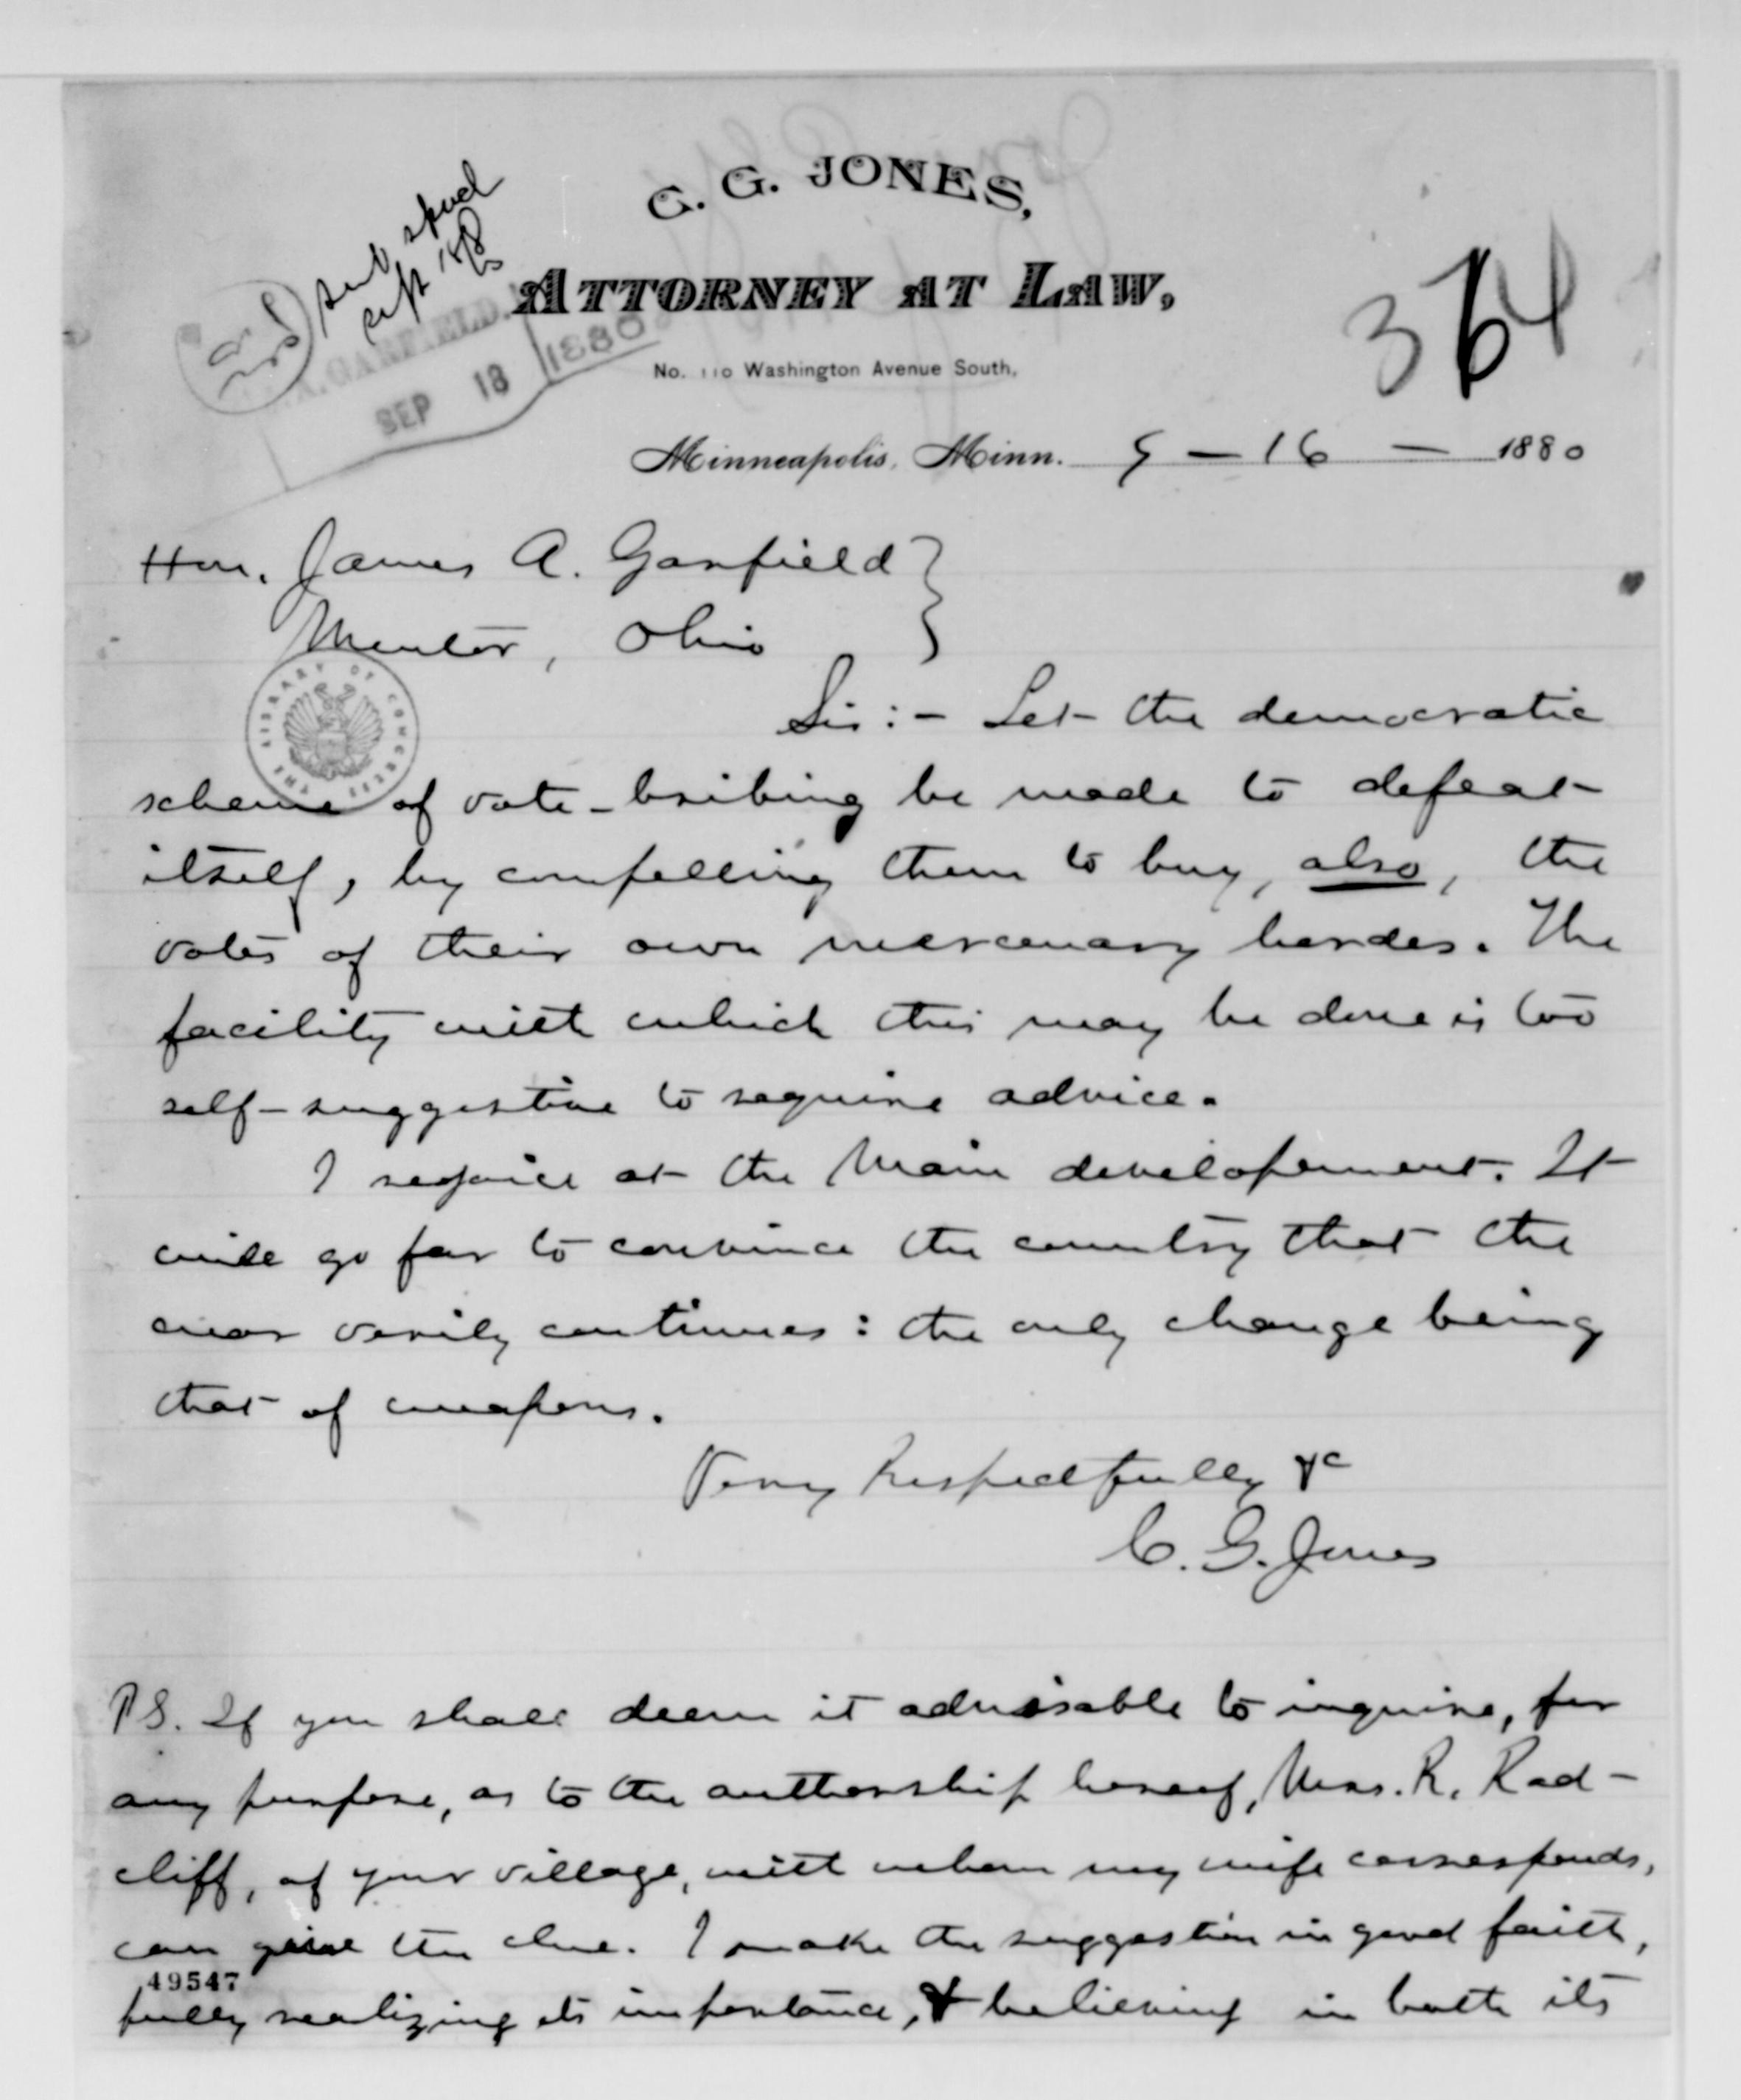 C. G. JONES,
ATTORNEY AT LAW,
No. 110 Washington Avenue South,
364
Sept 18
GARFIELD.
SEP 18 1880
Minneapolis, Minn. 9 - 16 - 1880
Hon. James A. Garfield
Mentor, Ohio
Sir :- Let the democratic
THE LIBRARY OF CONGRESS
scheme of vote-bribing be made to defeat
itself, by compelling them to buy, also, the
votes of their own mercenary hordes. The
facility with which this may be done is too
self-suggestive to require advice.
I rejoice at the Main developement. It
will go far to convince the country that the
war verily continues : the only change being
that of weapons.
Very Respectfully &c
C. G. Jones
P.S. If you shall deem it advisable to inquire, for
any purpose, as to the authorship hereof, Mrs. R. Rad-
cliff, of your village, with whom my wife corresponds,
can give the clue. I make the suggestion in good faith,
49547
fully realizing its importance, & believing in both its